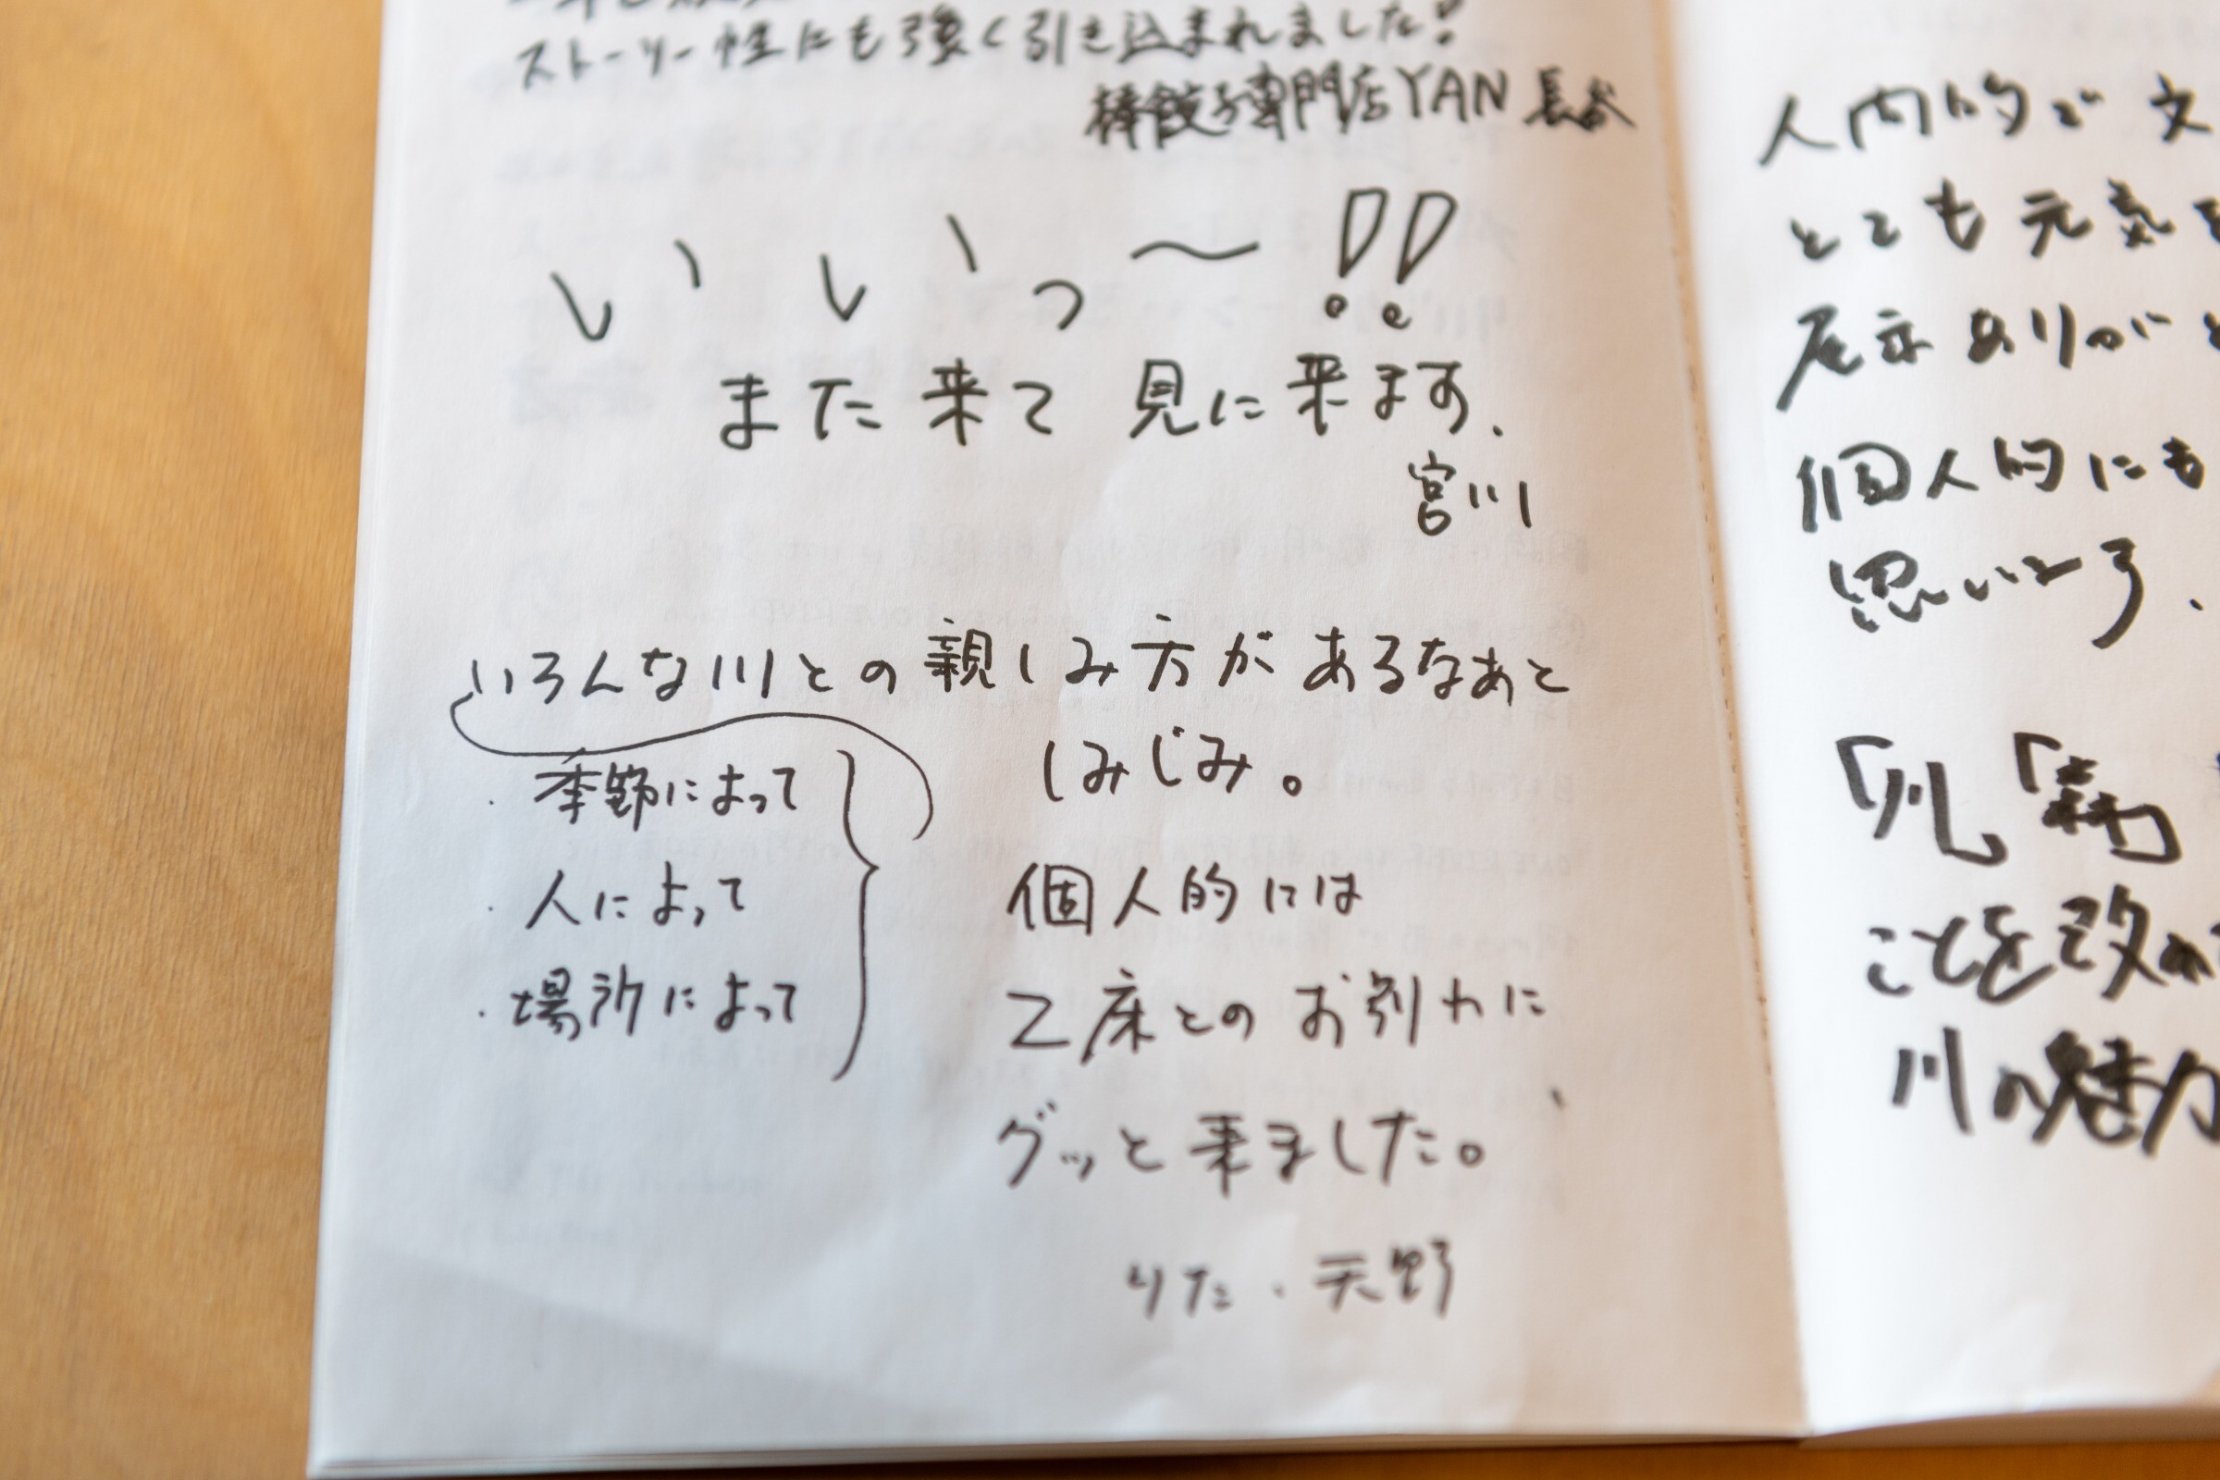 ストーリー性にも強く引き込まれました!
棒餃子専門店YAN 長谷
いいっ〜!!
また来て見に来ます.
宮川
いろんな川との親しみ方があるなぁと
しみじみ。
・季節によって
・人によって
・場所によって
個人的には
乙床とのお別れに
グッと来ました。
りた・天野
人間的で文
とても元気を
展示ありがと
個人的にも
思いをる.
「川」「森」
ことを改め
川の魅力